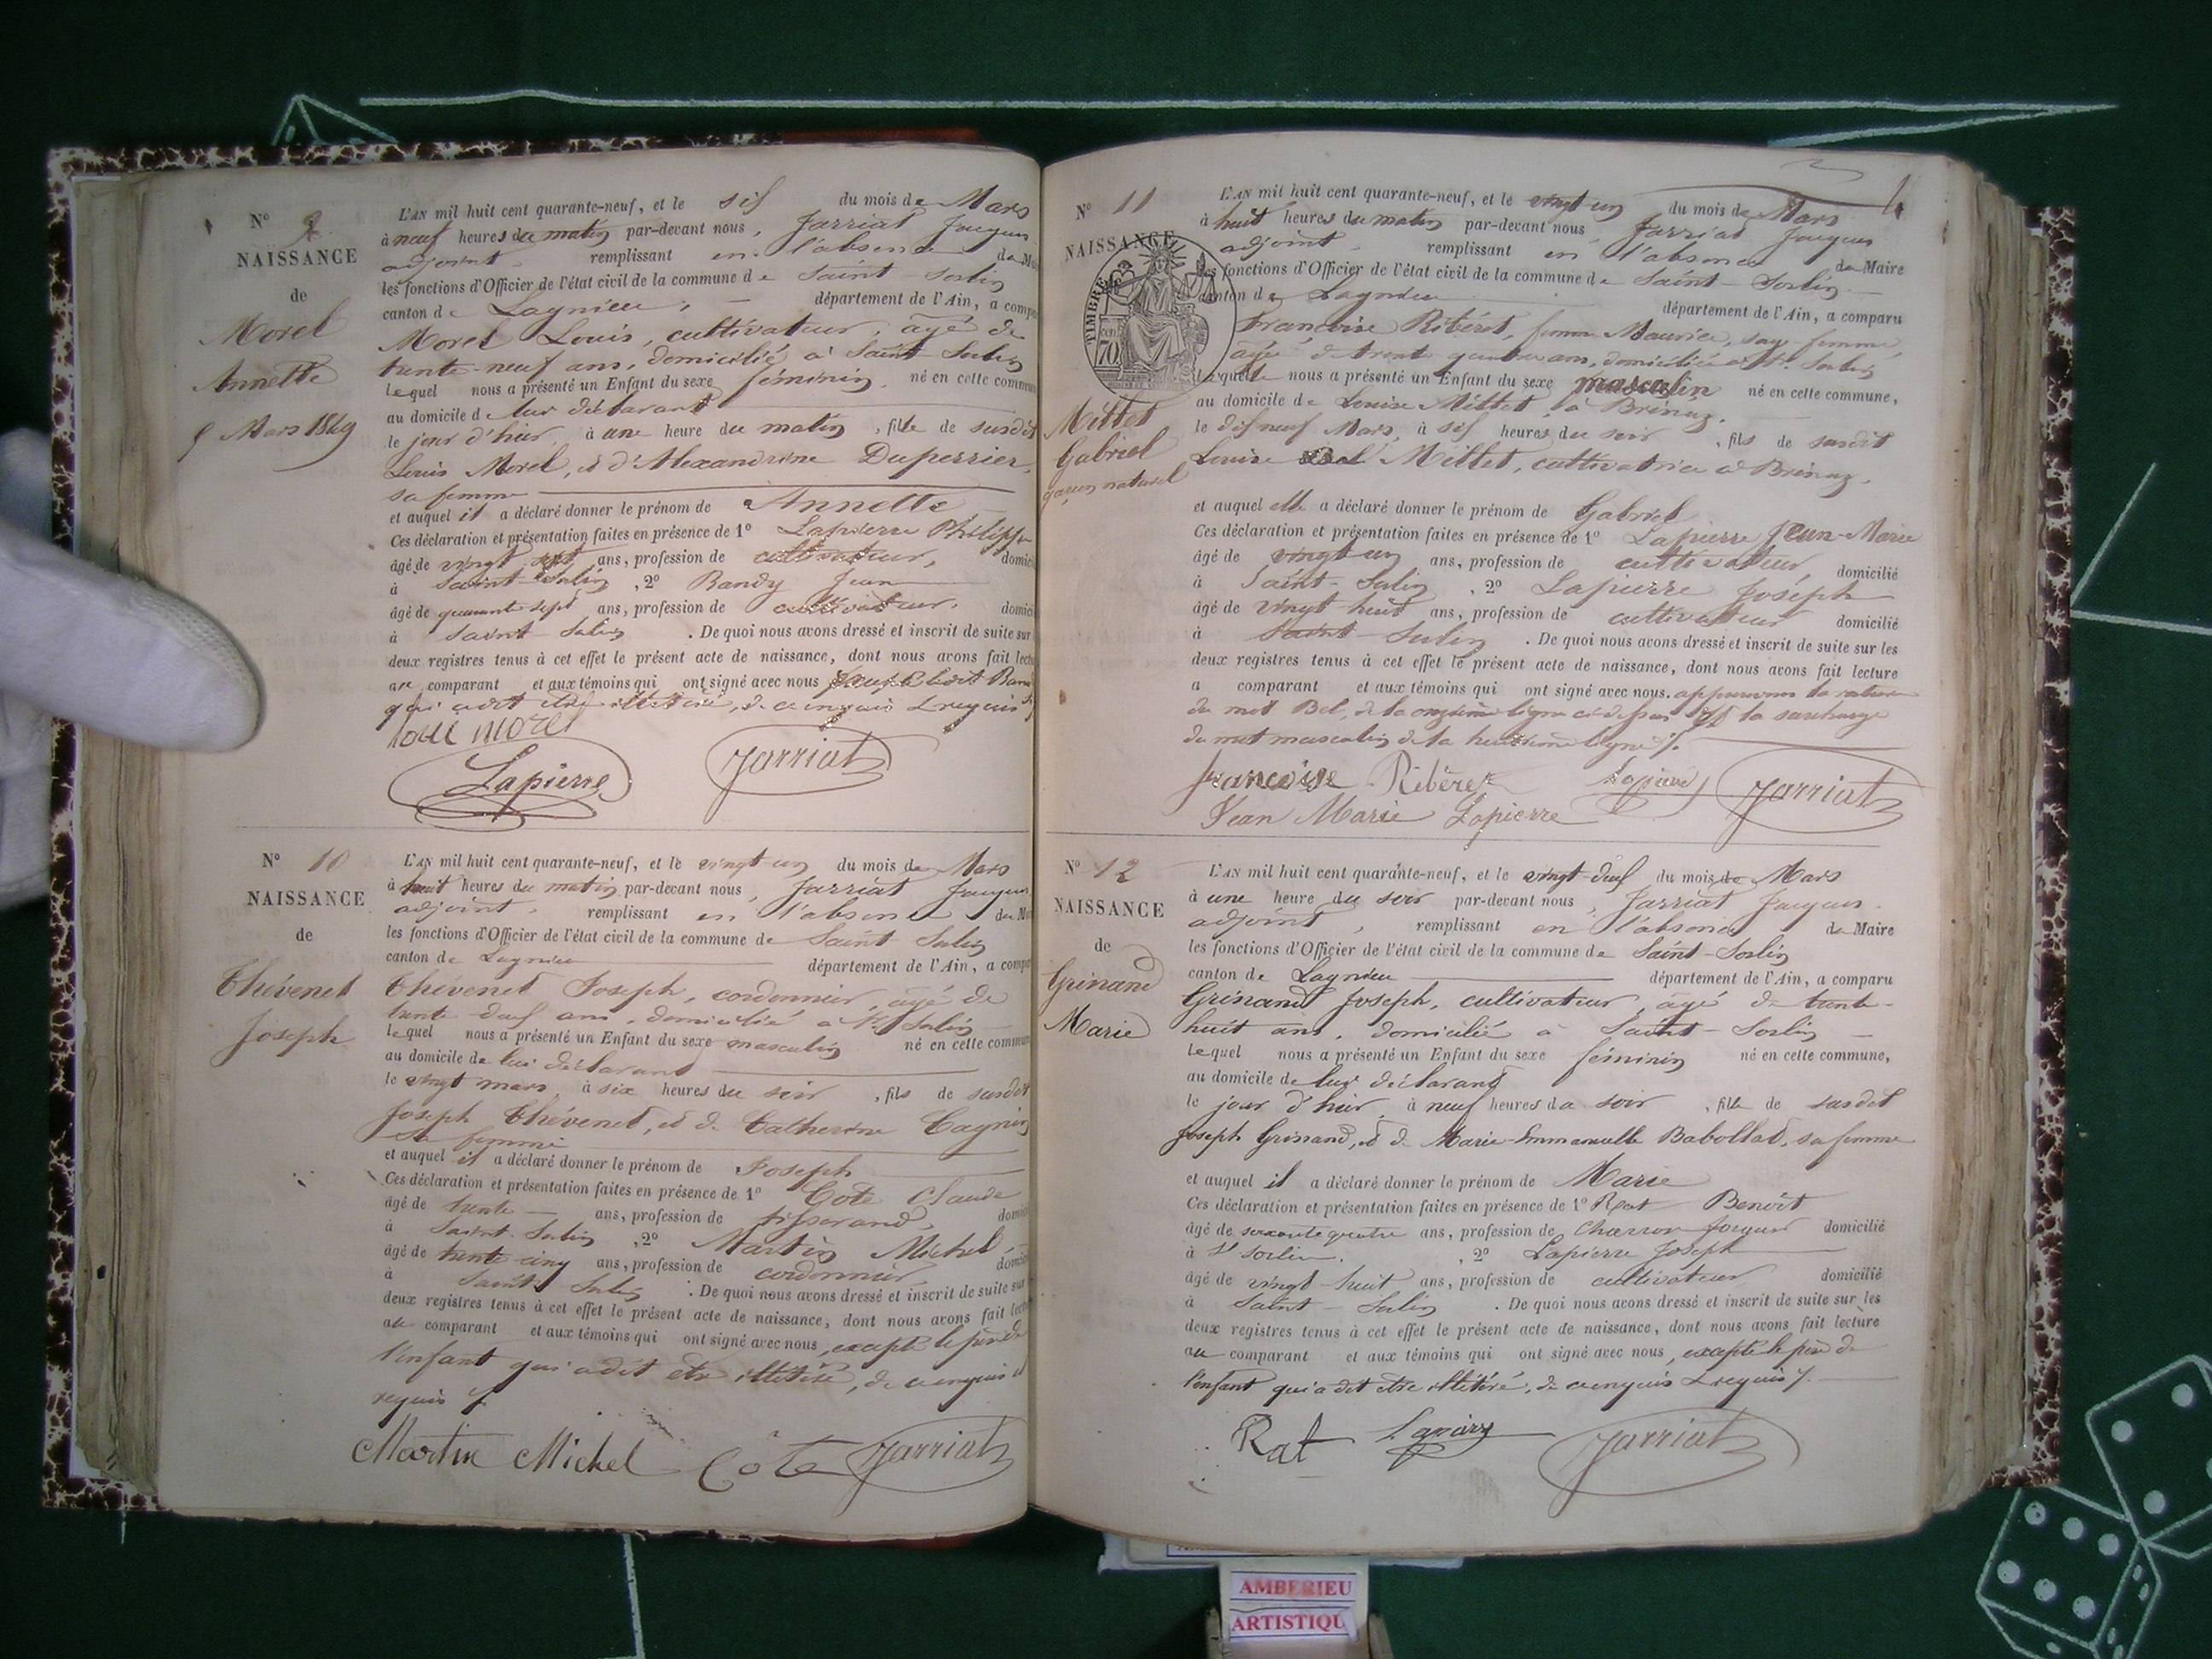 N° 9
NAISSANCE
de
Morel
Annette
5 Mars 1849
L'AN mil huit cent quarante-neuf, et le six du mois de Mars
à neuf heures du matin par-devant nous, Jarriat Jacques
adjoint, remplissant en l'absence du M
les fonctions d'Officier de l'état civil de la commune de Saint-Sorlin
canton de Lagnieu, département de l'Ain, a compa
Morel Louis, cultivateur, âgé de
trente-neuf ans, domicilié à Saint-Sorlin
lequel nous a présenté un Enfant du sexe féminin, né en cette commun
au domicile de lui déclarant
le jour d'hier, à une heure du matin, fille de susdit
Louis Morel, et d'Alexandrine Duperrier,
sa femme
et auquel il a déclaré donner le prénom de Annette
Ces déclaration et présentation faites en présence de 1° Lapierre Philippe
âgé de vingt sept ans, profession de cultivateur, domici
à Saint-Sorlin, 2° Bandy Jean
âgé de quarante sept ans, profession de cultivateur, domici
à Saint-Sorlin. De quoi nous avons dressé et inscrit de suite sur
deux registres tenus à cet effet le présent acte de naissance, dont nous avons fait lectu
au comparant et aux témoins qui ont signé avec nous, sauf ledit Band
qui a dit être illettré, de ce enquis & requis
loui morel
Lapierre Jarriat
N° 10
NAISSANCE
de
Thévenet
Joseph
L'AN mil huit cent quarante-neuf, et le vingt un du mois de Mars
à huit heures du matin par-devant nous, Jarriat Jacques
adjoint, remplissant en l'absence du M
les fonctions d'Officier de l'état civil de la commune de Saint Sorlin
canton de Lagnieu département de l'Ain, a compa
Thévenet Joseph, cordonnier, âgé de
trente deux ans, domicilié à St. Sorlin
lequel nous a présenté un Enfant du sexe masculin né en cette commun
au domicile de lui déclarant
le vingt mars, à six heures du soir, fils de susdit
Joseph Thévenet, et de Catherine Cagnin
sa femme
et auquel il a déclaré donner le prénom de Joseph
Ces déclaration et présentation faites en présence de 1° Cote Claude
âgé de trente ans, profession de tisserand, domi
à Saint-Sorlin, 2° Martin Michel,
âgé de trente-cinq ans, profession de cordonnier, domici
à Saint Sorlin. De quoi nous avons dressé et inscrit de suite sur
deux registres tenus à cet effet le présent acte de naissance, dont nous avons fait lect
au comparant et aux témoins qui ont signé avec nous, excepté le père de
l'enfant qui a dit être illettré, de ce enquis et
requis
Martin Michel Côte Jarriat
N° 11
NAISSANCE
TIMBRE
70
Millet
Gabriel
garçon naturel
L'AN mil huit cent quarante-neuf, et le vingt un du mois de Mars
à huit heures du matin par-devant nous, Jarriat Jacques
adjoint, remplissant en l'absence du Maire
les fonctions d'Officier de l'état civil de la commune de Saint-Sorlin
canton de Lagnieu département de l'Ain, a comparu
Françoise Ribéret, femme Maurice, sage-femme,
âgée de trente quatre ans, domiciliée à St. Sorlin
laquelle nous a présenté un Enfant du sexe masculin né en cette commune,
au domicile de Louise Millet, à Brénaz,
le dix neuf Mars, à six heures du soir, fils de susdit
Louise Bel Millet, cultivatrice à Brénaz,
et auquel elle a déclaré donner le prénom de Gabriel
Ces déclaration et présentation faites en présence de 1° Lapierre Jean-Marie
âgé de vingt un ans, profession de cultivateur, domicilié
à Saint-Sorlin, 2° Lapierre Joseph
âgé de vingt huit ans, profession de cultivateur domicilié
à Saint-Sorlin. De quoi nous avons dressé et inscrit de suite sur les
deux registres tenus à cet effet le présent acte de naissance, dont nous avons fait lecture
a comparant et aux témoins qui ont signé avec nous. approuvons la rature
du mot Bel, de la onzième ligne ci-dessus & la surcharge
du mot masculin de la huitième ligne
françoise Ribéret Lapierre Jarriat
Jean Marie Lapierre
N° 12
NAISSANCE
de
Grinand
Marie
L'AN mil huit cent quarante-neuf, et le vingt-deux du mois de Mars
à une heure du soir par-devant nous, Jarriat Jacques
adjoint, remplissant en l'absence du Maire
les fonctions d'Officier de l'état civil de la commune de Saint-Sorlin
canton de Lagnieu département de l'Ain, a comparu
Grinand Joseph, cultivateur, âgé de trente-
huit ans, domicilié à Saint-Sorlin
lequel nous a présenté un Enfant du sexe féminin né en cette commune,
au domicile de lui déclarant
le jour d'hier, à neuf heures du soir, fille de susdit
Joseph Grinand, et de Marie-Emmanuelle Babollat, sa femme
et auquel il a déclaré donner le prénom de Marie
Ces déclaration et présentation faites en présence de 1° Rat Benoît
âgé de soixante quatre ans, profession de Charron forgeur domicilié
à St Sorlin, 2° Lapierre Joseph
âgé de vingt-huit ans, profession de cultivateur domicilié
à Saint-Sorlin. De quoi nous avons dressé et inscrit de suite sur les
deux registres tenus à cet effet le présent acte de naissance, dont nous avons fait lecture
au comparant et aux témoins qui ont signé avec nous, excepté le père de
l'enfant qui a dit être illettré, de ce enquis & requis
Rat Lapierre Jarriat
AMBERIEU
ARTISTIQU